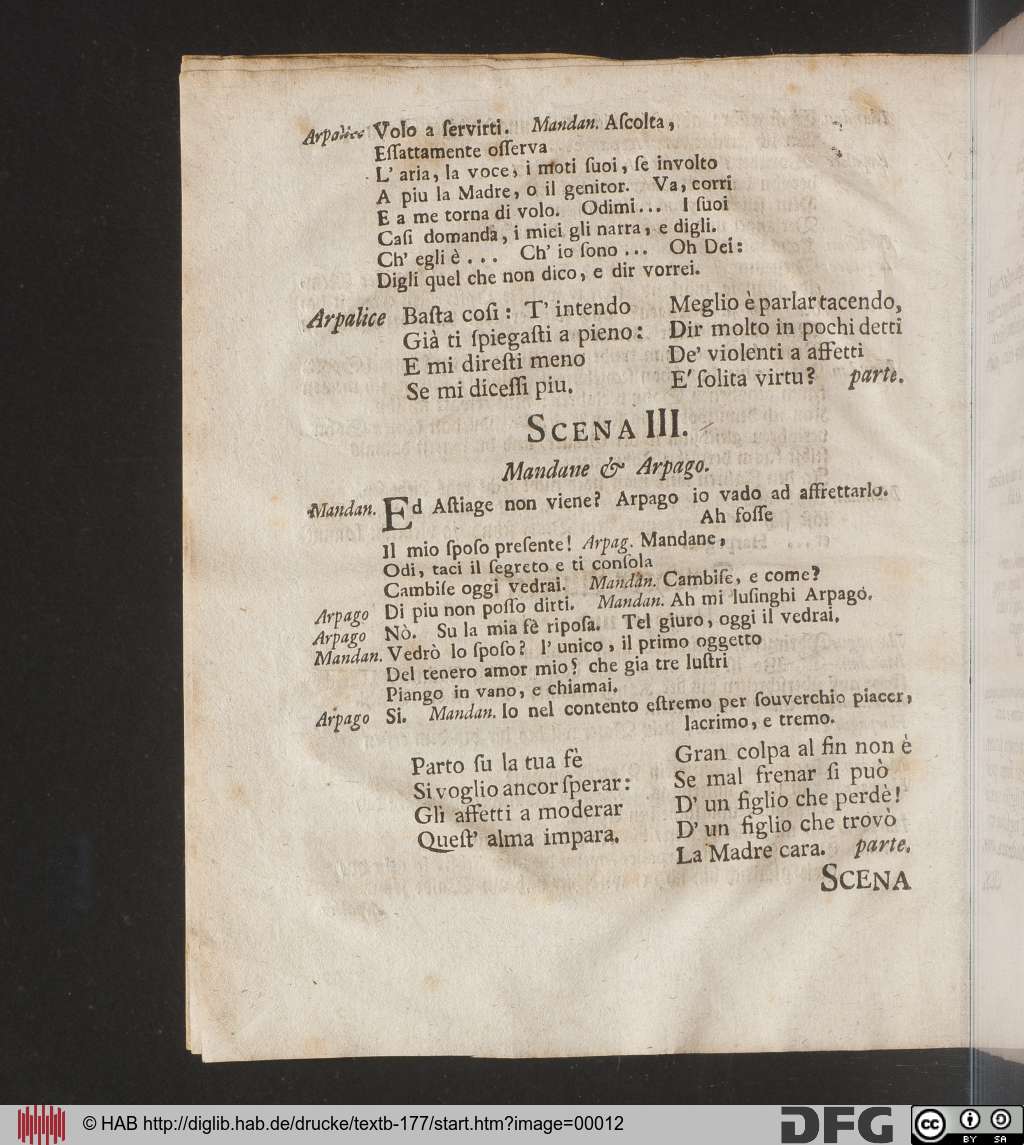 Arpalice Volo a ſervirti. Mandan. Aſcolta,
Eſſattamente oſſerva
L' aria, la voce, i moti ſuoi, ſe involto
A piu la Madre, o il genitor. Va, corri
E a me torna di volo. Odimi... I ſuoi
Caſi domanda, i miei gli narra, e digli.
Ch' egli è ... Ch' io ſono ... Oh Dei:
Digli quel che non dico, e dir vorrei.
Arpalice Baſta coſi: T' intendo
Già ti ſpiegaſti a pieno:
E mi direſti meno
Se mi diceſſi piu.
Meglio è parlar tacendo,
Dir molto in pochi detti
De' violenti a affetti
E' ſolita virtu? parte.
SCENA III.
Mandane & Arpago.
Mandan. Ed Aſtiage non viene? Arpago io vado ad affrettarlo.
Ah foſſe
Il mio ſpoſo preſente! Arpag. Mandane,
Odi, taci il ſegreto e ti conſola
Cambiſe oggi vedrai. Mandan. Cambiſe, e come?
Arpago Di piu non poſſo dirti. Mandan. Ah mi luſinghi Arpago.
Arpago Nò. Su la mia fè ripoſa. Tel giuro, oggi il vedrai.
Mandan. Vedrò lo ſpoſo? l' unico, il primo oggetto
Del tenero amor mio? che gia tre luſtri
Piango in vano, e chiamai.
Arpago Si. Mandan. Io nel contento eſtremo per ſouverchio piacer,
lacrimo, e tremo.
Parto ſu la tua fè
Si voglio ancor ſperar:
Gli affetti a moderar
Queſt' alma impara.
Gran colpa al fin non è
Se mal frenar ſi può
D' un figlio che perdè!
D' un figlio che trovò
La Madre cara. parte.
SCENA
© HAB http://diglib.hab.de/drucke/textb-177/start.htm?image=00012
DFG
cc BY SA